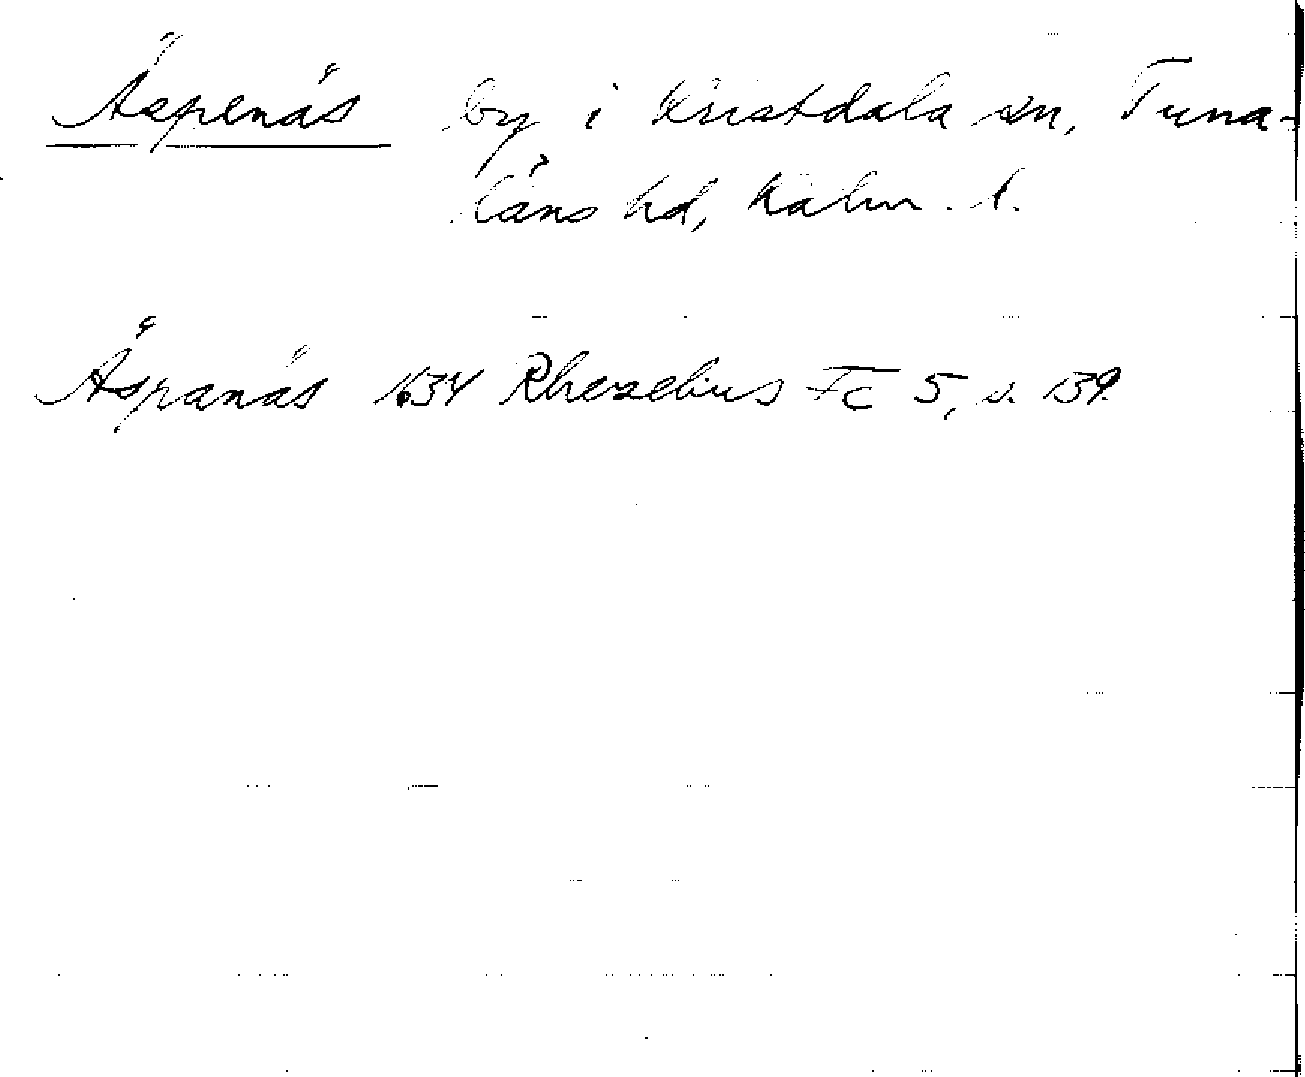 Äspenäs by i Kristdala sn, Tuna-
läns hd, Kalm. l.
Äspanäs 1634 Rhezelius Fc 5, s. 139.